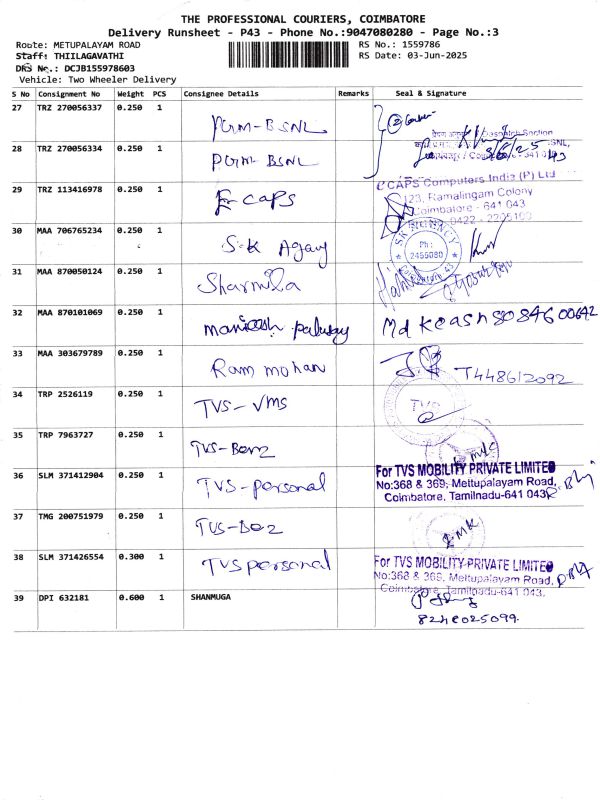 THE PROFESSIONAL COURIERS, COIMBATORE
Delivery Runsheet - P43 - Phone No.:9047080280 - Page No.:3
Route: METUPALAYAM ROAD RS No.: 1559786
Staff: THIILAGAVATHI RS Date: 03-Jun-2025
DRS No.: DCJB155978603
Vehicle: Two Wheeler Delivery
S No Consignment No Weight PCS Consignee Details Remarks Seal & Signature
27 TRZ 270056337 0.250 1 PGM-BSNL
28 TRZ 270056334 0.250 1 PGM-BSNL
Despatch Section
BSNL,
3/6/25
29 TRZ 113416978 0.250 1 E caps
CAPS Computers India (P) Ltd
123, Ramalingam Colony
Coimbatore - 641 043
0422 - 2205100
30 MAA 706765234 0.250 1 S.K Agany
SK AGENCY
Ph :
2455080
31 MAA 870050124 0.250 1 Sharmila
32 MAA 870101069 0.250 1 Md Keash 8084600642
33 MAA 303679789 0.250 1 Ram mohan
34 TRP 2526119 0.250 1 TVS-VMS
TVS
35 TRP 7963727 0.250 1 TVS-Benz
36 SLM 371412904 0.250 1 TVS-personal
For TVS MOBILITY PRIVATE LIMITED
No:368 & 369, Mettupalayam Road,
Coimbatore, Tamilnadu-641 043.
37 TMG 200751979 0.250 1 TVS-Benz
38 SLM 371426554 0.300 1 TVS personal
For TVS MOBILITY PRIVATE LIMITED
No:368 & 369, Mettupalayam Road,
Coimbatore, Tamilnadu-641 043.
39 DPI 632181 0.600 1 SHANMUGA